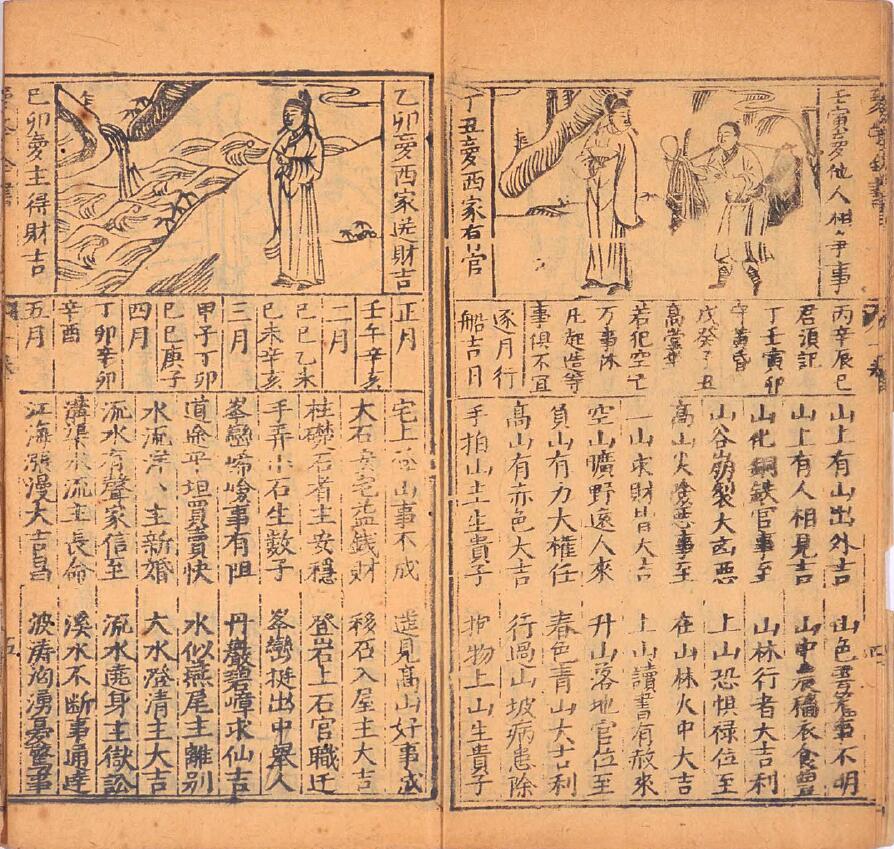 壬寅夢他人相爭事
丁丑夢西家有官
丙辛辰巳
君須記
丁壬寅卯
守黃昏
戊癸子丑
高堂
若犯空亡
万事休
凡起造等
事俱不宜
逐月行
船吉日
山上有山出外吉
山色
事不明
山上有人相見吉
山中
衣食豐
山化銅鉄官事至
山林行者大吉利
山谷崩裂大凶惡
上山恐惧祿位至
高山火
事至
在山林火中大吉
山求財皆大吉
上山讀書有赦來
空山曠野遠人來
升山落地官位至
負山有力大權任
春色青山大吉利
高山有赤色大吉
行過山坡病患除
手抬山土生貴子
抱物上山生貴子
乙卯夢西家送財吉
己卯夢主得財吉
正月
壬午辛亥
二月
己巳乙未
己未辛亥
三月
甲子丁卯
己巳庚子
四月
丁卯辛卯
辛酉
五月
宅上
山事不成
遠見高山好事成
大石
宅益錢財
移石入屋主大吉
柱礎石者主安穩
登岩上石官職迁
手弄小石生数子
峯巒挺出中舉人
峯巒
峻事有阻
丹巖碧嶂求仙吉
道途平坦買賣快
水似燕尾主離別
水流洋々主新婚
大水澄清主大吉
流水有聲家信至
流水遶身主獄訟
溝渠水流主長命
溪水不断事通達
江海漲漫大吉昌
波涛洶湧
五